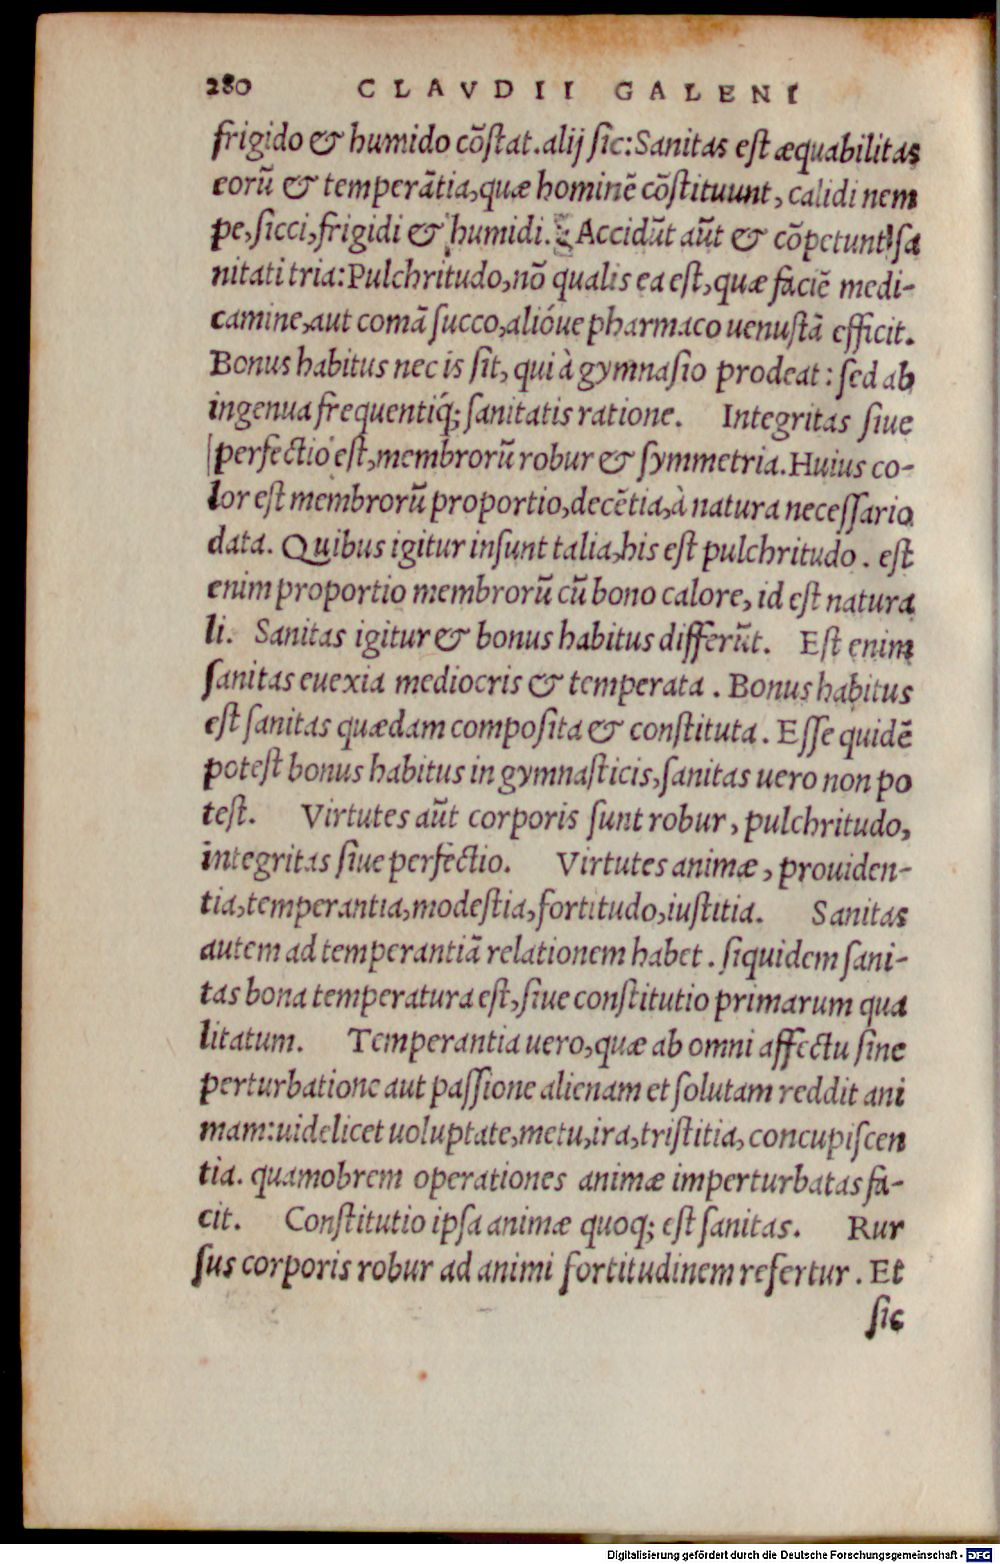 280 CLAVDII GALENI
frigido & humido cõstat. alij sic: Sanitas est æquabilitas
eorũ & temperãtia, quæ hominẽ cõstituunt, calidi nem
pe, sicci, frigidi & humidi. Accidũt aũt & cõpetunt sa
nitati tria: Pulchritudo, nõ qualis ea est, quæ faciẽ medi-
camine, aut comã succo, alióue pharmaco uenustã efficit.
Bonus habitus nec is sit, qui à gymnasio prodeat: sed ab
ingenua frequentiq́; sanitatis ratione. Integritas siue
perfectio est, membrorũ robur & symmetria. Huius co-
lor est membrorũ proportio, decẽtia, à natura necessario
data. Quibus igitur insunt talia, his est pulchritudo. est
enim proportio membrorũ cũ bono calore, id est natura
li. Sanitas igitur & bonus habitus differũt. Est enim
sanitas euexia mediocris & temperata. Bonus habitus
est sanitas quædam composita & constituta. Esse quidẽ
potest bonus habitus in gymnasticis, sanitas uero non po
test. Virtutes aũt corporis sunt robur, pulchritudo,
integritas siue perfectio. Virtutes animæ, prouiden-
tia, temperantia, modestia, fortitudo, iustitia. Sanitas
autem ad temperantiã relationem habet. siquidem sani-
tas bona temperatura est, siue constitutio primarum qua
litatum. Temperantia uero, quæ ab omni affectu sine
perturbatione aut passione alienam et solutam reddit ani
mam: uidelicet uoluptate, metu, ira, tristitia, concupiscen
tia. quamobrem operationes animæ imperturbatas fa-
cit. Constitutio ipsa animæ quoq; est sanitas. Rur
sus corporis robur ad animi fortitudinem refertur. Et
sic
Digitalisierung gefördert durch die Deutsche Forschungsgemeinschaft - DFG